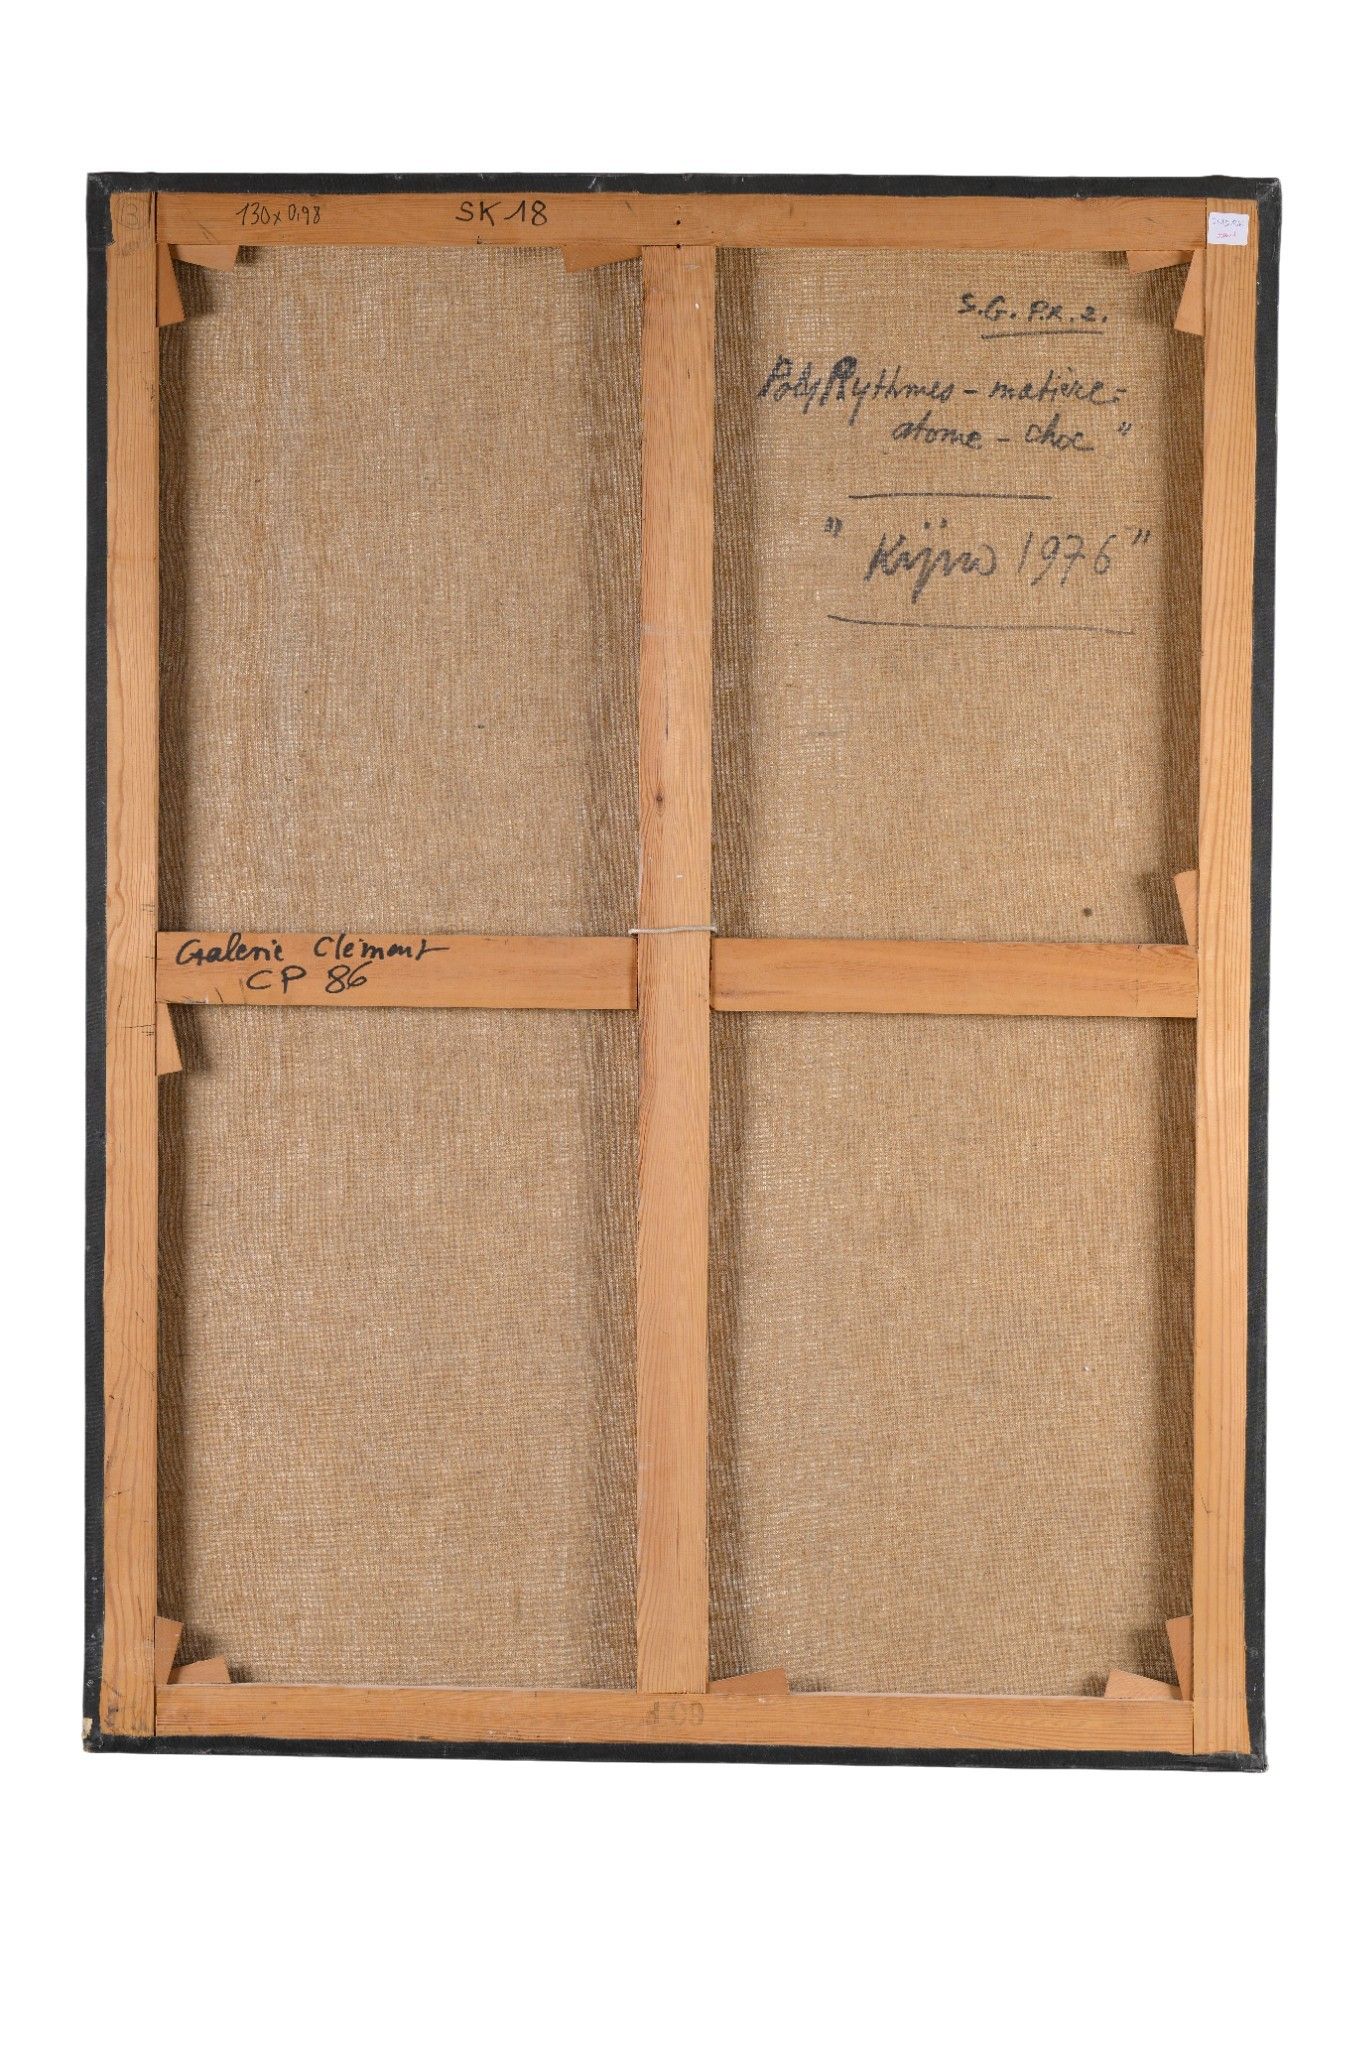 130x0,98 SK 18
S.G. P.R. 2.
PolyRythmes - matière -
atome - choc "
" Kijno 1976 "
Galerie Clément
CP 86
60 F